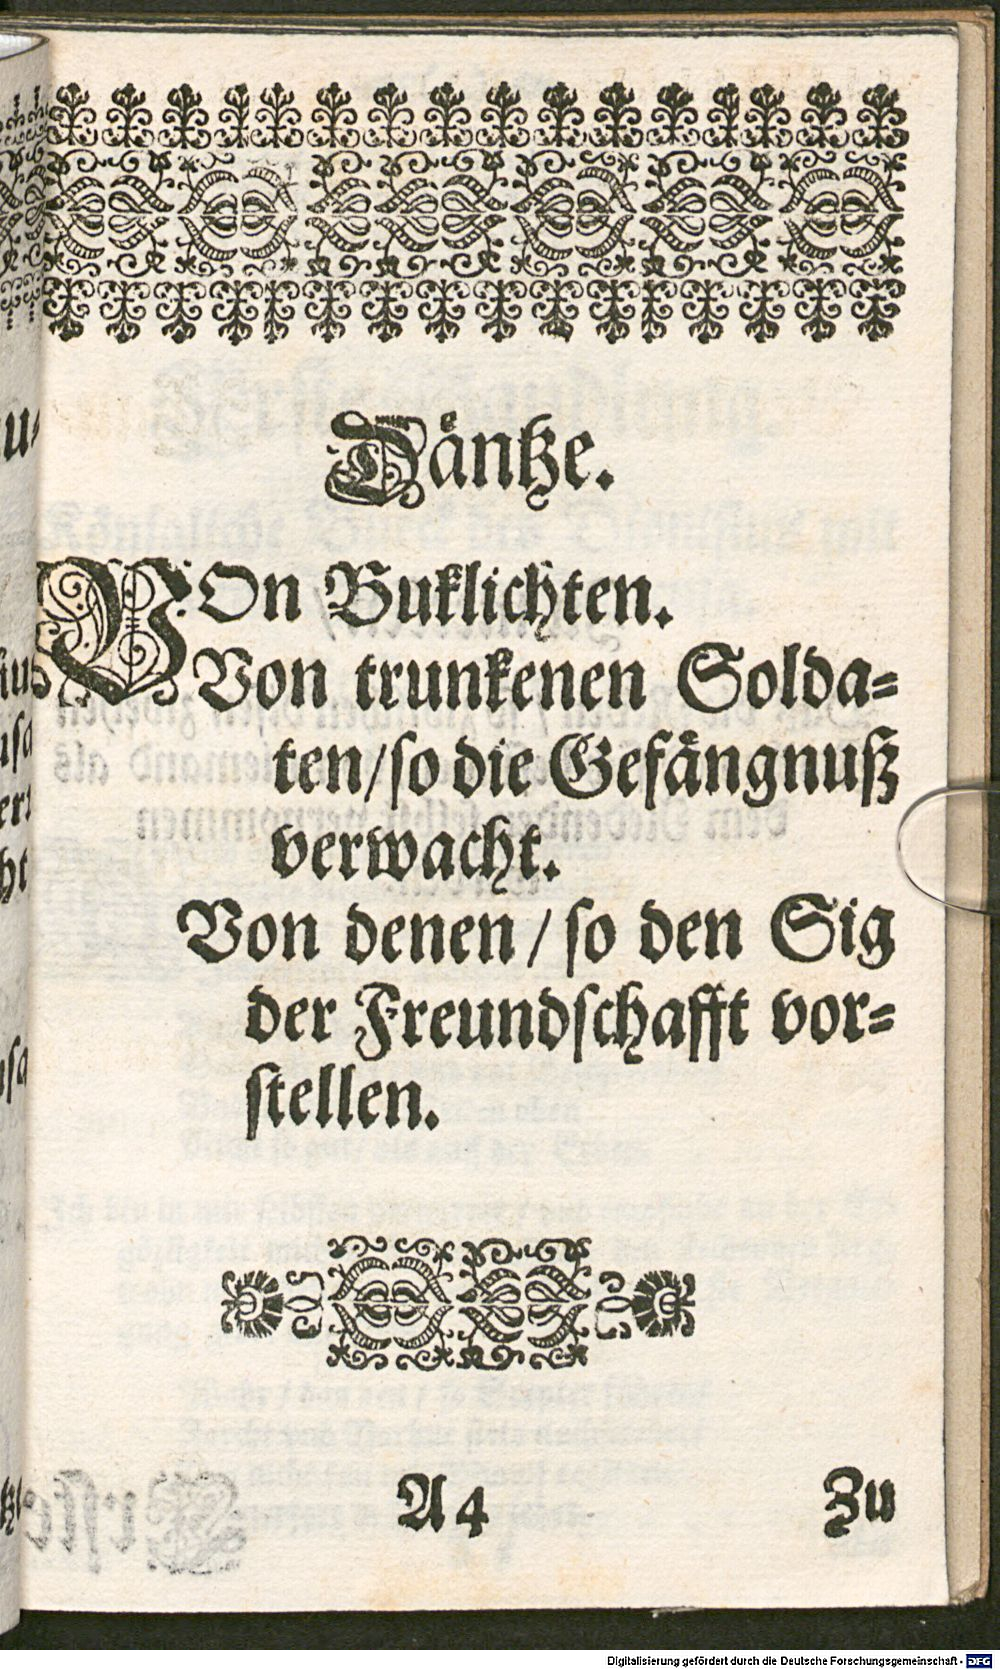 Däntze.
VOn Buklichten.
Von trunkenen Solda=
ten/so die Gefängnuß
verwacht.
Von denen/so den Sig
der Freundschafft vor=
stellen.
A4
Zu
Digitalisierung gefördert durch die Deutsche Forschungsgemeinschaft - DFG